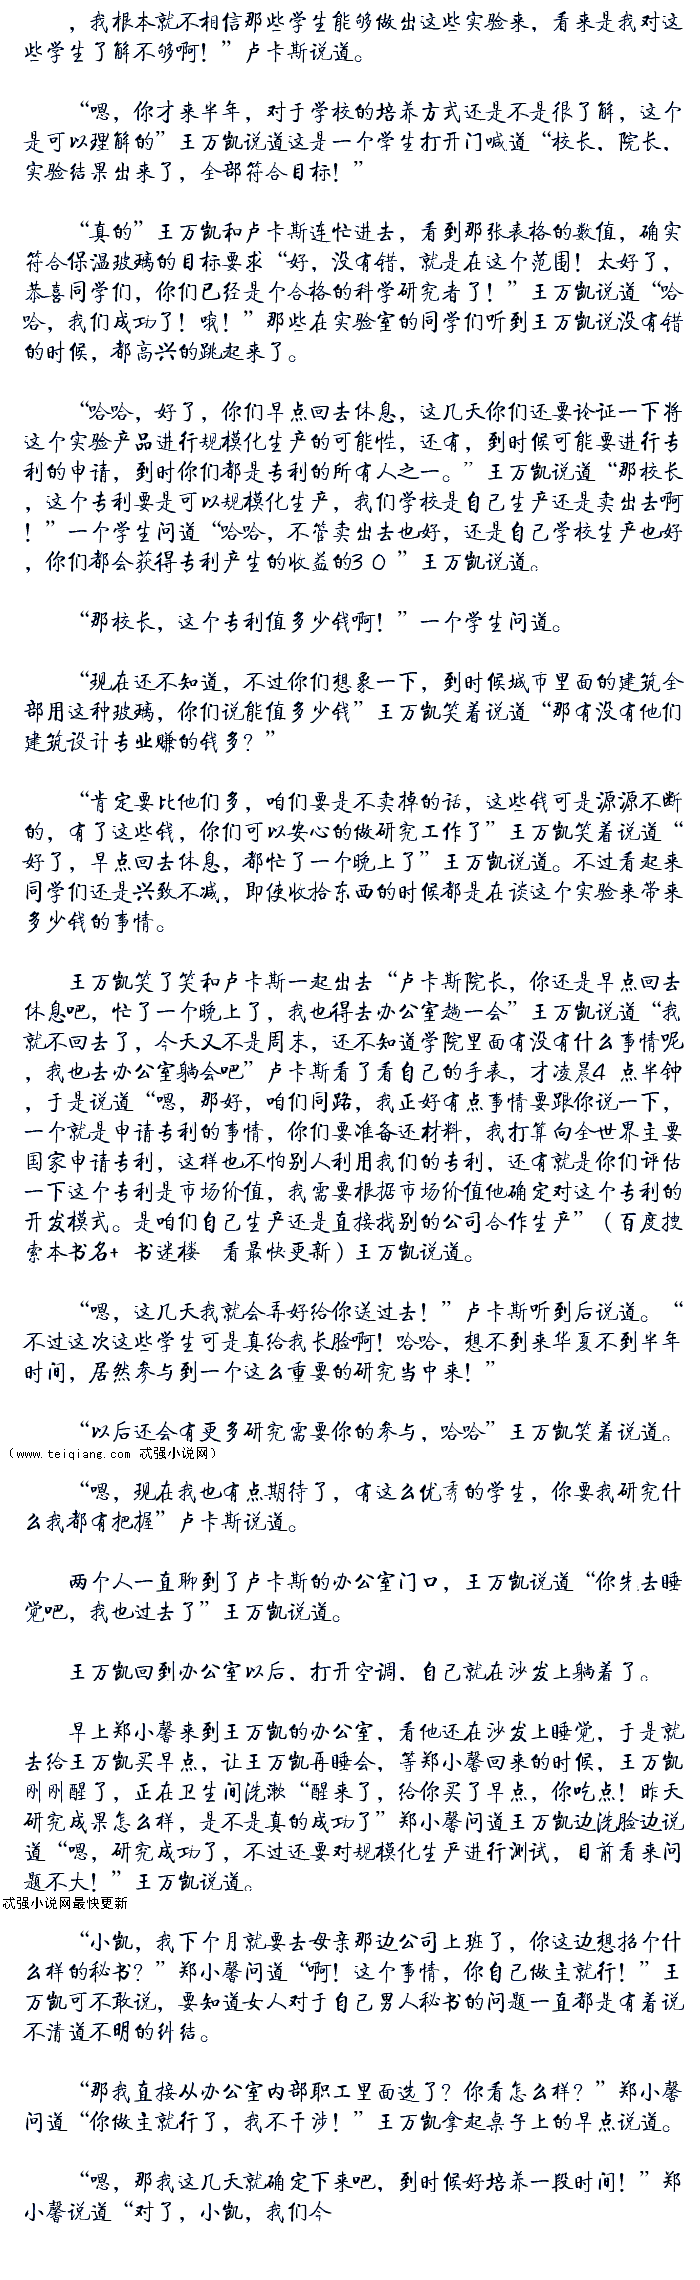 ，我根本就不相信那些学生能够做出这些实验来，看来是我对这
些学生了解不够啊！”卢卡斯说道。
“嗯，你才来半年，对于学校的培养方式还是不是很了解，这个
是可以理解的”王万凯说道这是一个学生打开门喊道“校长，院长，
实验结果出来了，全部符合目标！”
“真的”王万凯和卢卡斯连忙进去，看到那张表格的数值，确实
符合保温玻璃的目标要求“好，没有错，就是在这个范围！太好了，
恭喜同学们，你们已经是个合格的科学研究者了！”王万凯说道“哈
哈，我们成功了！哦！”那些在实验室的同学们听到王万凯说没有错
的时候，都高兴的跳起来了。
“哈哈，好了，你们早点回去休息，这几天你们还要论证一下将
这个实验产品进行规模化生产的可能性，还有，到时候可能要进行专
利的申请，到时你们都是专利的所有人之一。”王万凯说道“那校长
，这个专利要是可以规模化生产，我们学校是自己生产还是卖出去啊
！”一个学生问道“哈哈，不管卖出去也好，还是自己学校生产也好
，你们都会获得专利产生的收益的30 ”王万凯说道。
“那校长，这个专利值多少钱啊！”一个学生问道。
“现在还不知道，不过你们想象一下，到时候城市里面的建筑全
部用这种玻璃，你们说能值多少钱”王万凯笑着说道“那有没有他们
建筑设计专业赚的钱多？”
“肯定要比他们多，咱们要是不卖掉的话，这些钱可是源源不断
的，有了这些钱，你们可以安心的做研究工作了”王万凯笑着说道“
好了，早点回去休息，都忙了一个晚上了”王万凯说道。不过看起来
同学们还是兴致不减，即使收拾东西的时候都是在谈这个实验来带来
多少钱的事情。
王万凯笑了笑和卢卡斯一起出去“卢卡斯院长，你还是早点回去
休息吧，忙了一个晚上了，我也得去办公室趟一会”王万凯说道“我
就不回去了，今天又不是周末，还不知道学院里面有没有什么事情呢
，我也去办公室躺会吧”卢卡斯看了看自己的手表，才凌晨4 点半钟
，于是说道“嗯，那好，咱们同路，我正好有点事情要跟你说一下，
一个就是申请专利的事情，你们要准备还材料，我打算向全世界主要
国家申请专利，这样也不怕别人利用我们的专利，还有就是你们评估
一下这个专利是市场价值，我需要根据市场价值他确定对这个专利的
开发模式。是咱们自己生产还是直接找别的公司合作生产”（百度搜
索本书名+ 书迷楼 看最快更新）王万凯说道。
“嗯，这几天我就会弄好给你送过去！”卢卡斯听到后说道。“
不过这次这些学生可是真给我长脸啊！哈哈，想不到来华夏不到半年
时间，居然参与到一个这么重要的研究当中来！”
“以后还会有更多研究需要你的参与，哈哈”王万凯笑着说道。
（www.teiqiang.com 忒强小说网）
“嗯，现在我也有点期待了，有这么优秀的学生，你要我研究什
么我都有把握”卢卡斯说道。
两个人一直聊到了卢卡斯的办公室门口，王万凯说道“你先去睡
觉吧，我也过去了”王万凯说道。
王万凯回到办公室以后，打开空调，自己就在沙发上躺着了。
早上郑小馨来到王万凯的办公室，看他还在沙发上睡觉，于是就
去给王万凯买早点，让王万凯再睡会，等郑小馨回来的时候，王万凯
刚刚醒了，正在卫生间洗漱“醒来了，给你买了早点，你吃点！昨天
研究成果怎么样，是不是真的成功了”郑小馨问道王万凯边洗脸边说
道“嗯，研究成功了，不过还要对规模化生产进行测试，目前看来问
题不大！”王万凯说道。
忒强小说网最快更新
“小凯，我下个月就要去母亲那边公司上班了，你这边想招个什
么样的秘书？”郑小馨问道“啊！这个事情，你自己做主就行！”王
万凯可不敢说，要知道女人对于自己男人秘书的问题一直都是有着说
不清道不明的纠结。
“那我直接从办公室内部职工里面选了？你看怎么样？”郑小馨
问道“你做主就行了，我不干涉！”王万凯拿起桌子上的早点说道。
“嗯，那我这几天就确定下来吧，到时候好培养一段时间！”郑
小馨说道“对了，小凯，我们今